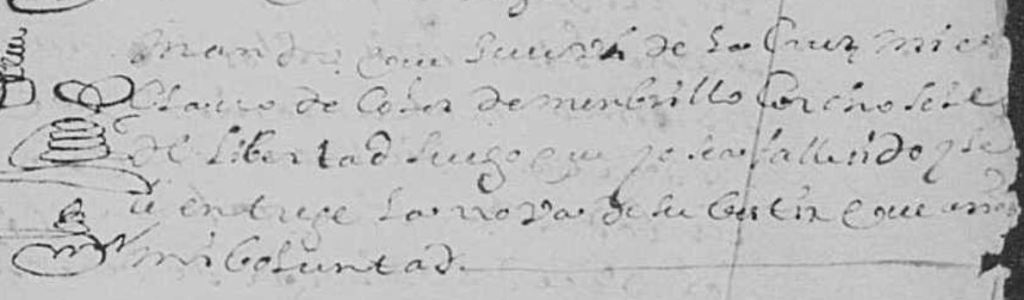 mando que Juan de la Cruz mi es
clavo de color de membrillo corcho se le
de libertad luego que yo sea fallesido y se
le entrege la rropa de su bestir que assi es
mi boluntad.